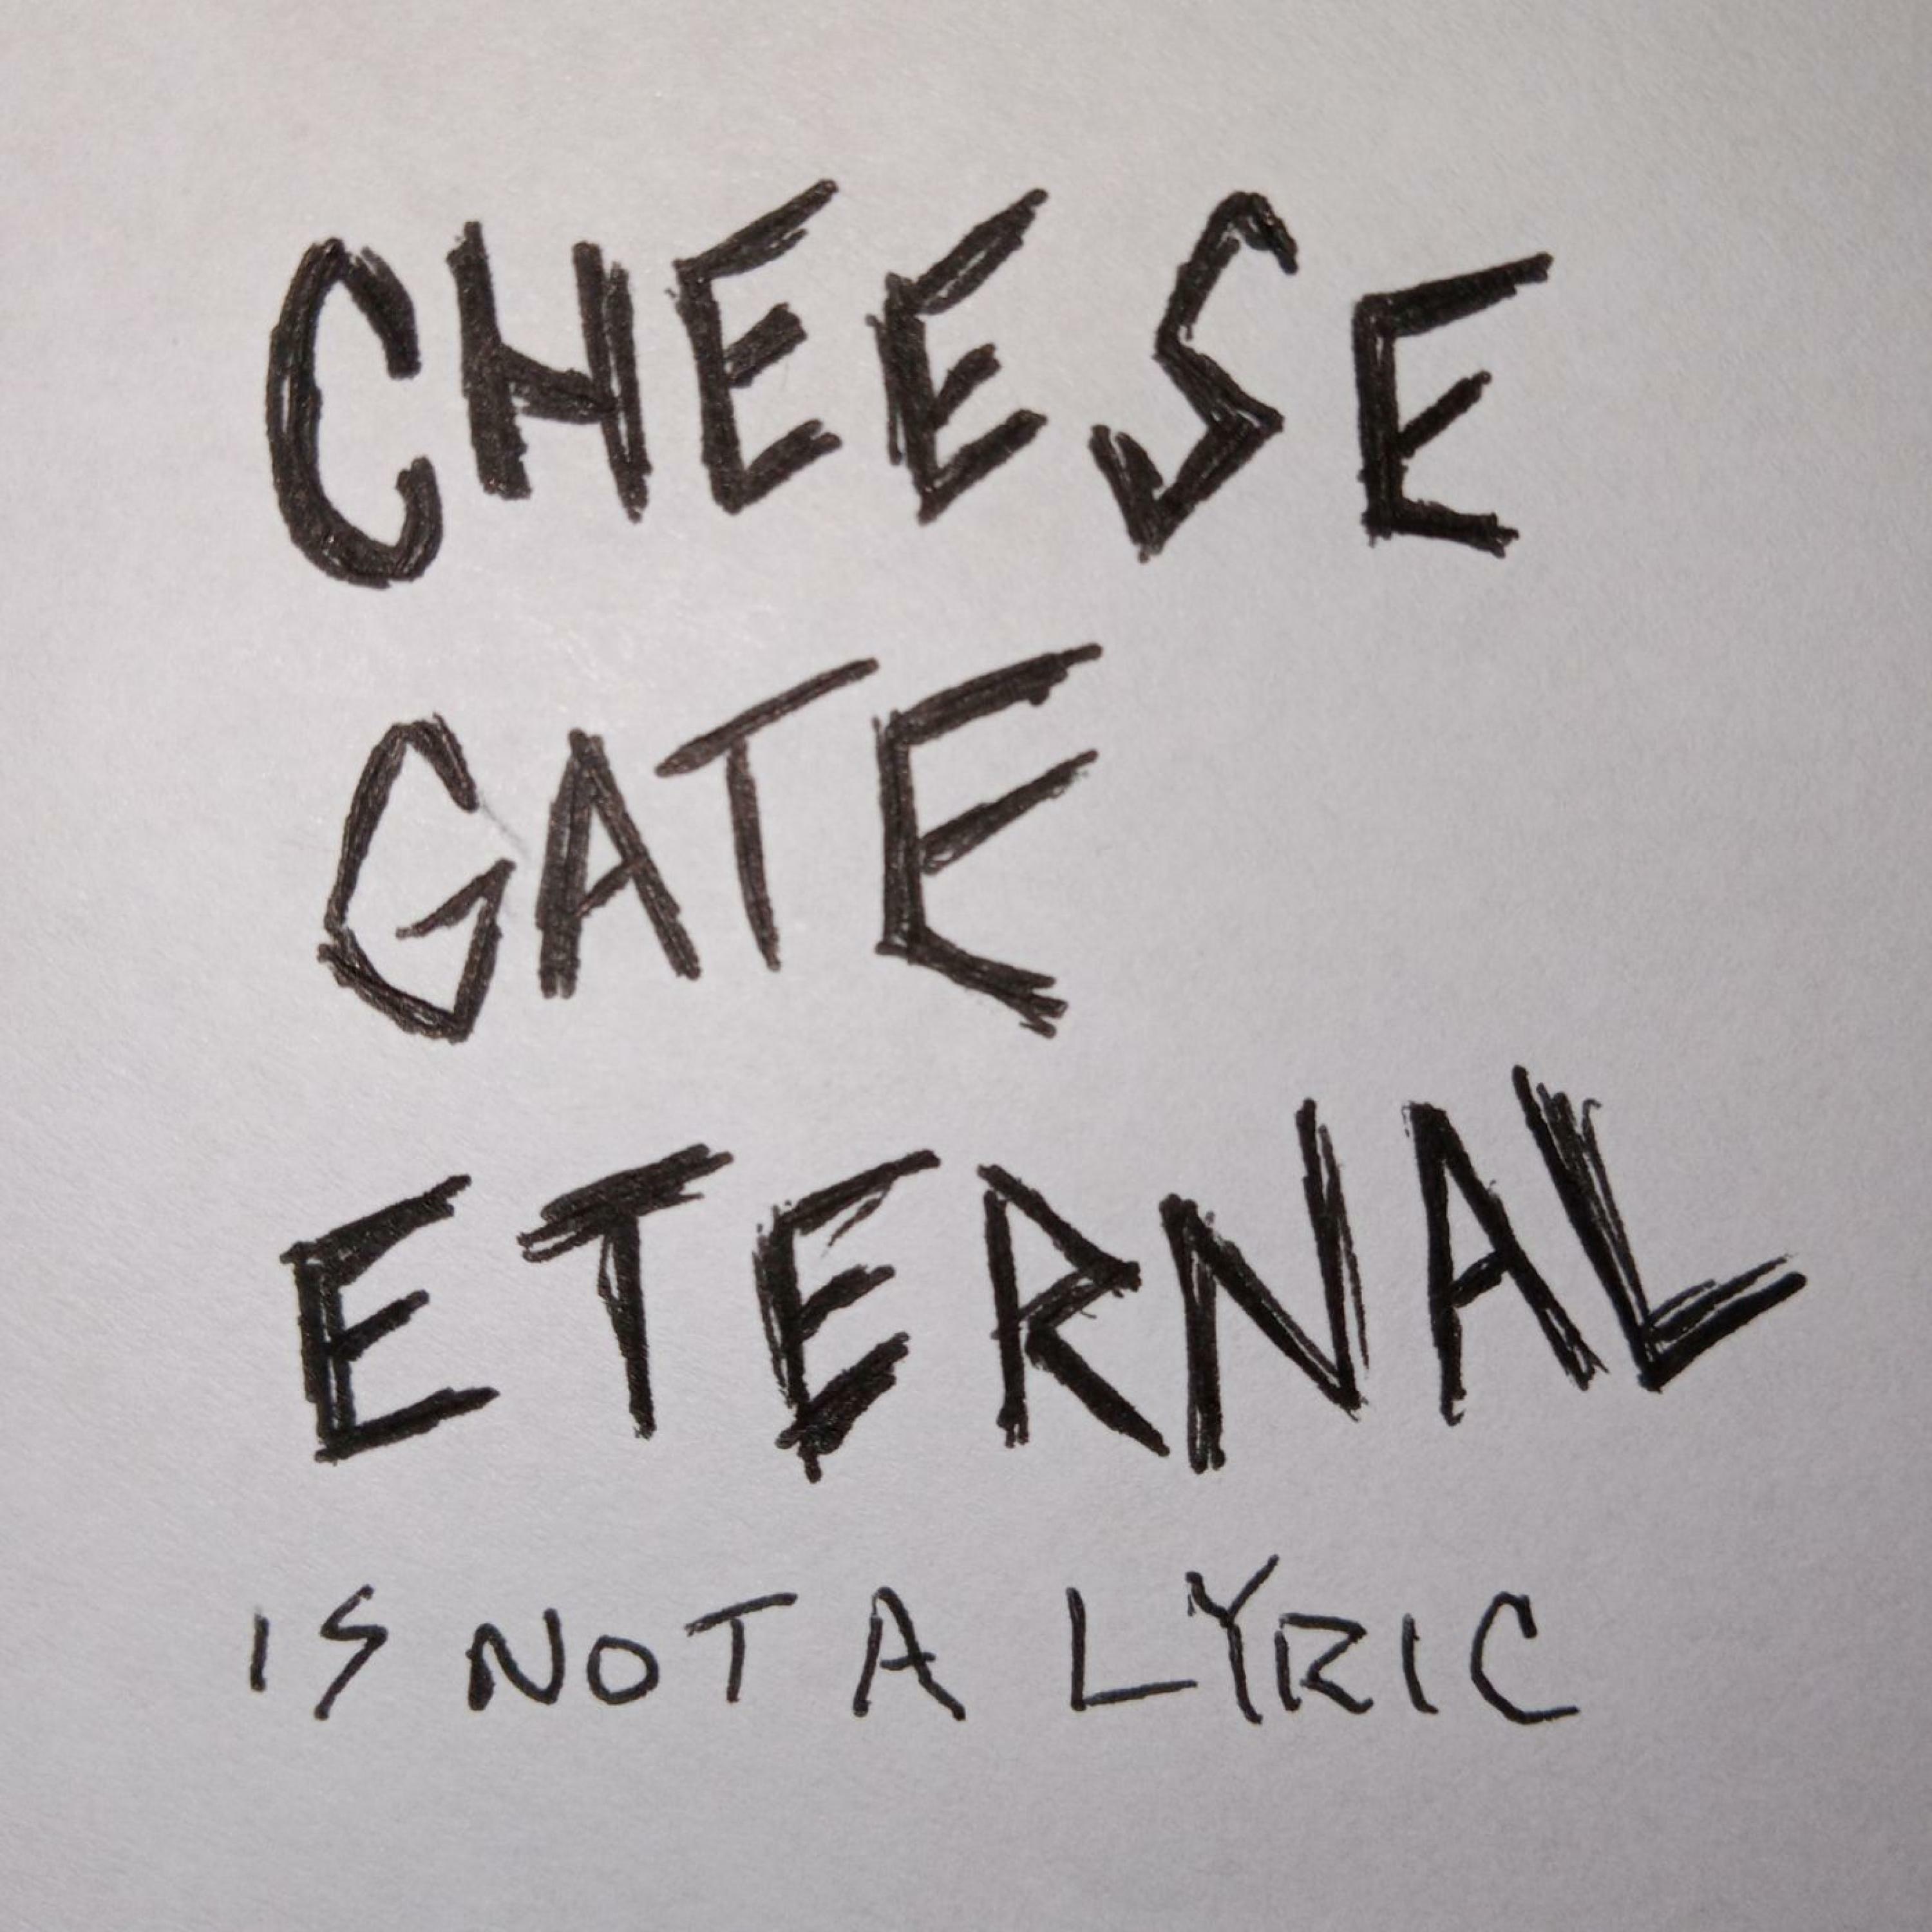 CHEESE
GATE
ETERNAL
IS NOT A LYRIC